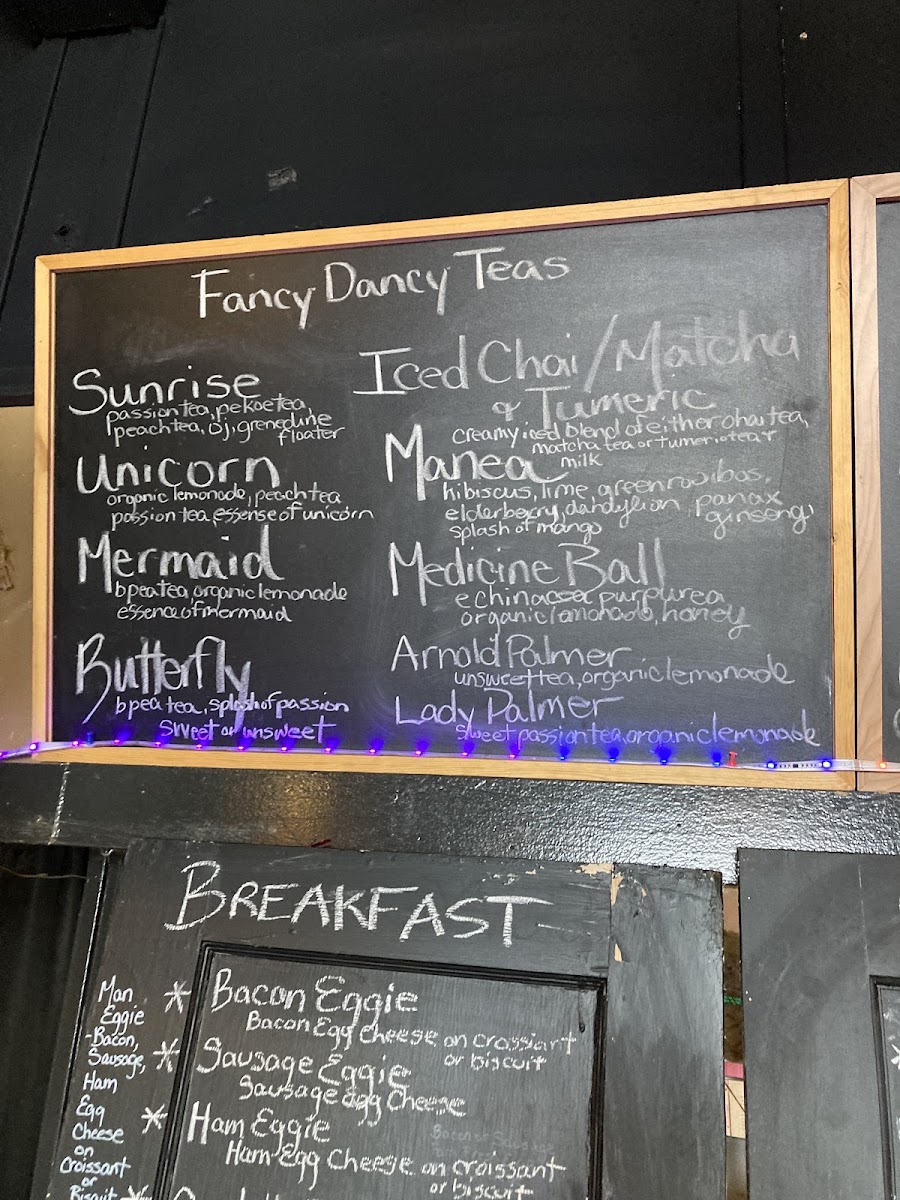 Fancy Dancy Teas
Sunrise
passion tea, pekoe tea,
peach tea, oj, grenedine
floater
Unicorn
organic lemonade, peach tea
passion tea essense of unicorn
Mermaid
bpea tea, organic lemonade
essence of mermaid
Butterfly
bpea tea, splash of passion
sweet or unsweet
Iced Chai / Matcha
& Tumeric
creamy iced blend of either chai tea,
matcha tea or tumeric tea &
milk
Manea
hibiscus, lime, green rooibos,
elderberry, dandylion, panax
ginseng,
splash of mango
Medicine Ball
echinacea purpurea
organic lemonade, honey
Arnold Palmer
unsweet tea, organic lemonade
Lady Palmer
sweet passion tea, organic lemonade
BREAKFAST
Man
Eggie
-Bacon,
Sausage,
Ham
Egg
Cheese
on
Croissant
or
Biscuit
* Bacon Eggie
Bacon Egg Cheese on crossiart
or biscuit
* Sausage Eggie
Sausage egg Cheese
* Ham Eggie
Ham Egg Cheese on croissant
or biscuit